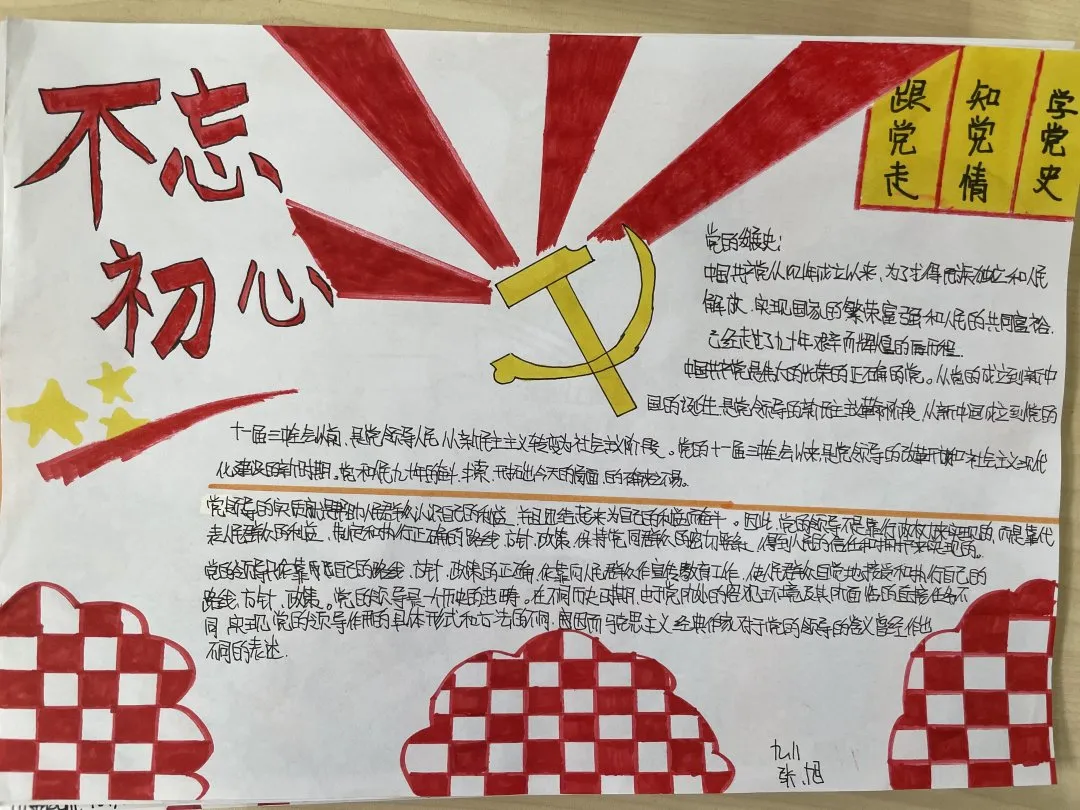 不忘
初心
学党史
知党情
跟党走
党的发展史:
中国共产党从1921年成立以来,为了求得民族独立和人民
解放,实现国家的繁荣富强和人民的共同富裕,
已经走过了九十年艰辛而辉煌的历程
中国共产党是伟大的光荣的正确的党。从党的成立到新中
国的诞生是党领导的新民主主义革命阶段,从新中国成立到党的
十一届三中全会以前,是党领导人民从新民主主义转变为社会主义阶段。党的十一届三中全会以来是党领导的改革开放和社会主义现代
化建设的新时期。党和人民九十年的奋斗、求索、开拓出今天的局面,的确来之不易。
党领导的实质就是帮助人民群众认识自己的利益,并且团结起来为自己的利益而奋斗。因此,党的领导不是靠行政权力来实现的,而是靠代
表人民群众的利益,制定和执行正确的路线、方针、政策,保持党同群众的密切联系,得到人民的信任和拥护来实现的。
党的领导只能靠自己的路线、方针、政策的正确,依靠向人民群众作宣传教育工作,使人民群众自觉地接受和执行自己的
路线、方针、政策。党的领导是一个历史的范畴。在不同历史时期,由于党所处的客观环境及其所面临的直接任务不
同,实现党的领导作用的具体形式和方法的不同,因而马克思主义经典作家对于党的领导的含义曾经作出
不同的表达.
九.11
张旭